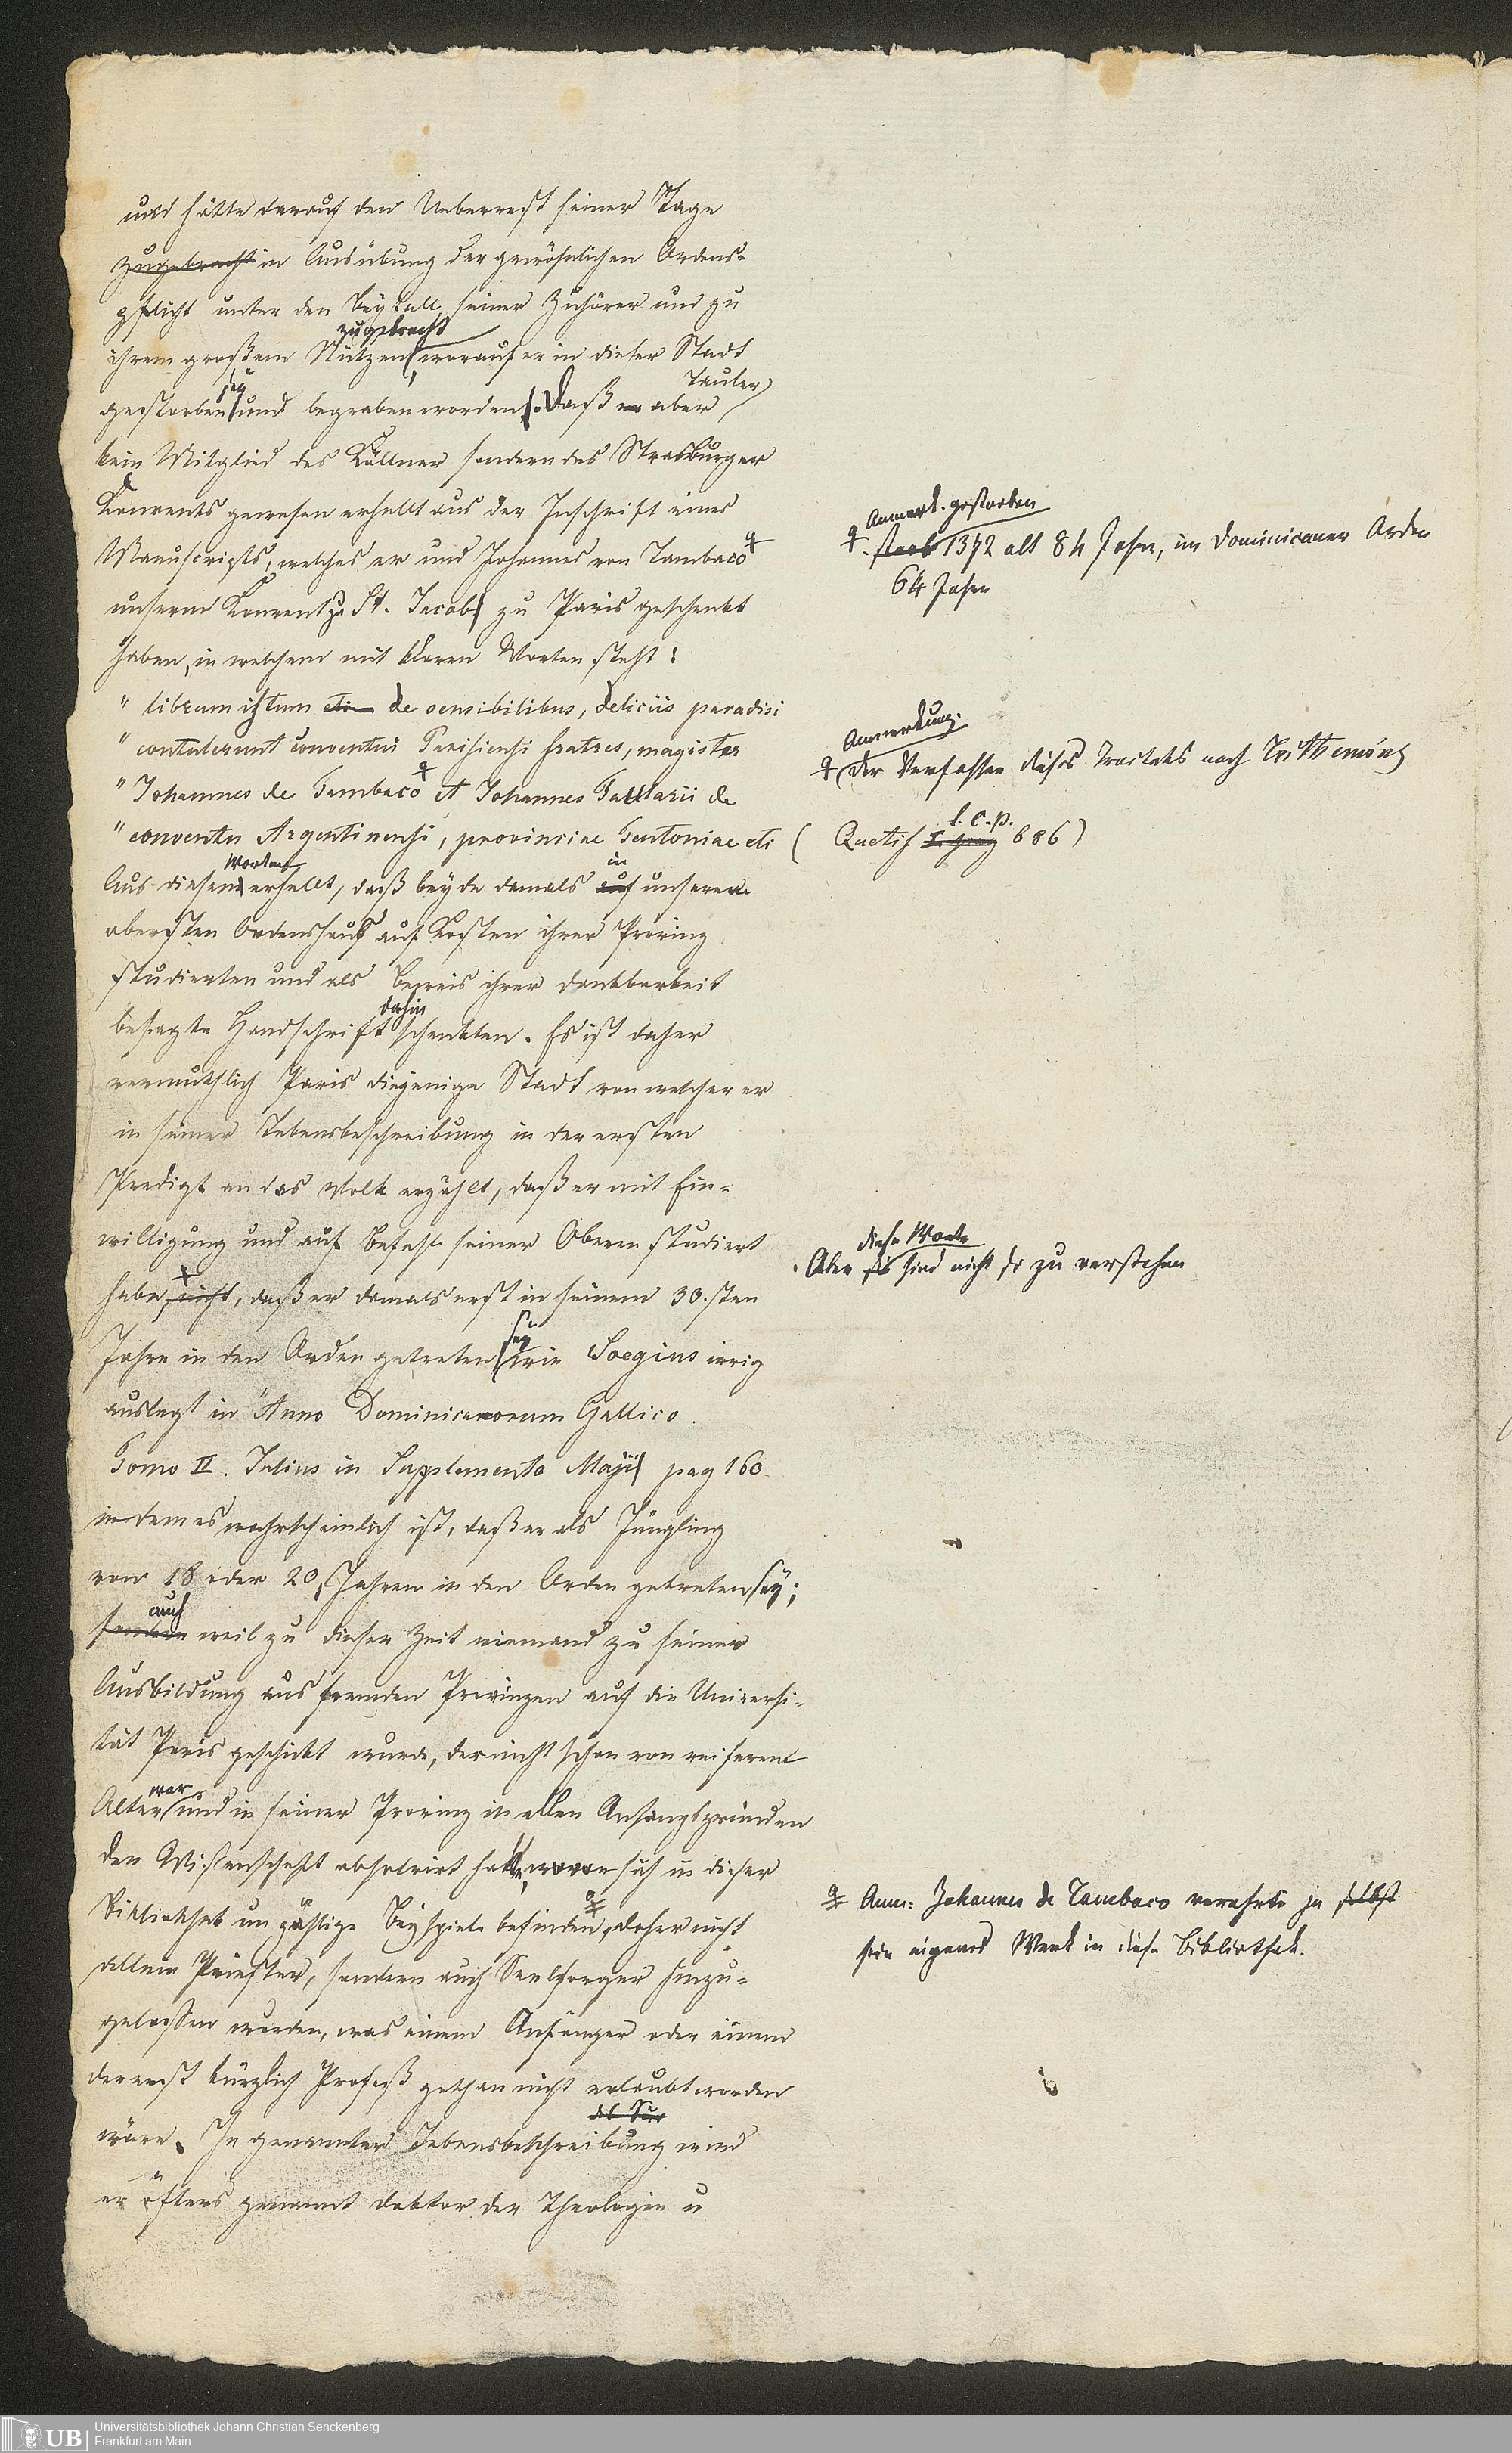 und hätte darauf den Ueberrest seiner Tage
zugebracht in Ausübung der gewöhnlichen Ordens-
pflicht unter den Beyfall seiner Zuhörer und zu
zugebracht
ihrem großem Nutzen, worauf er in dieser Stadt
sey Tauler
gestorben und begraben worden. Daß er aber
kein Mitglied des Köllner sondern des Strasburger
Konvents gewesen erhellt aus der Inschrift eines
Manuscripts, welches er und Johannes von Tambaco
unserm Konvent zu St. Jacob zu Paris geschenkt
haben, in welchem mit klaren Worten steht:
" librum istum de sensibilibus, deliciis paradisi
" contulerunt conventui Parisiensi fratres, magister
" Johannes de Tambaco et Johannes Taularii de
" conventu Argentinensi, provinciae Teutoniae etc
Worten in
Aus diesen erhellt, daß beyde damals auf unserem
obersten Ordenshaus auf Kosten ihrer Provinz
studierten und als Beweis ihrer Dankbarkeit
dahin
besagte Handschrift schenkten. Es ist daher
vermuthlich Paris diejenige Stadt von welcher er
in seiner Lebensbeschreibung in der ersten
Predigt an das Volk erzählt, daß er mit Ein-
willigung und auf Befehl seiner Obern studiert
habe, nicht, daß er damals erst in seinem 30.sten
sey
Jahre in den Orden getreten wie Soegius irrig
auslegt in Anno Dominicanorum Gallico.
Tomo II. Julius in Supplemento Maji pag 160
indem es wahrscheinlich ist, daß er als Jüngling
von 18 oder 20 Jahren in den Orden getreten sey;
auch
sondern weil zu dieser Zeit niemand zu seiner
Ausbildung aus fremden Provinzen auf die Universi-
tät Paris geschickt wurde, der nicht schon von reiferem
war
Alter und in seiner Provinz in allen Anfangsgründen
der Wissenschaft absolvirt hatte, wovon sich in dieser
Bibliothek unzählige Beyspiele befinden, daher nicht
allein Priester, sondern auch Seelsorger hinzu-
gelassen wurden, was einem Anfänger oder einem
der erst kürzlich Profeß gethan nicht erlaubt worden
wäre. In genannter Lebensbeschreibung wird
er öfters genannt Doktor der Theologie u
Anmerk. gestorben
starb 1372 alt 84 Jahre, im Dominicaner Orden
64 Jahre
Anmerkung.
Der Verfasser dieses Tractats nach Trithemius
l. c. p.
( Quetif I. pag 686)
diese Worte
Aber sie sind nicht so zu verstehen
Anm: Johannes de Tambaco verehrte ja selbst
sein eigenes Werk in diese Bibliothek.
UB Universitätsbibliothek Johann Christian Senckenberg
Frankfurt am Main